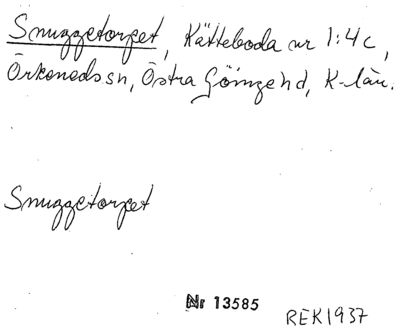 Snuggetorpet, Kätteboda nr 1:4c,
Örkeneds sn, Östra Göinge hd, K-län.
Snuggetorpet
Nr 13585
REK1937